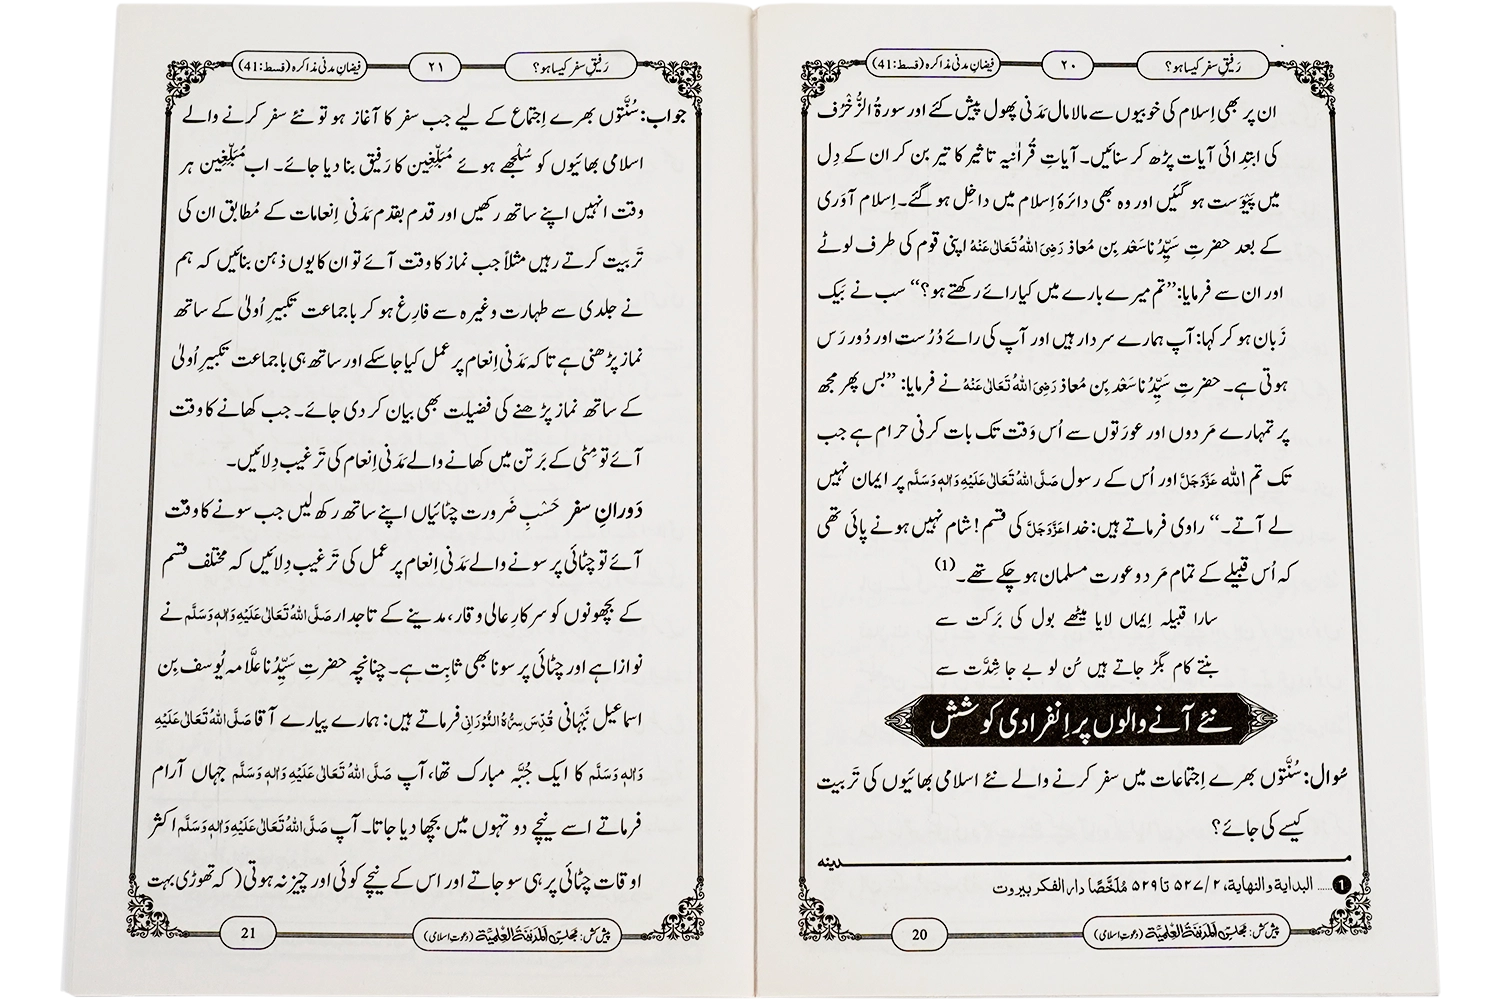 رَفیقِ سفر کیسا ہو؟
۲۰
فیضانِ مدنی مذاکرہ (قسط:41)
ان پر بھی اِسلام کی خوبیوں سے مالا مال مَدَنی پھول پیش کئے اور سورۃُ الزُّخْرُف
کی ابتدائی آیات پڑھ کر سنائیں۔ آیاتِ قُرانیہ تاثیر کا تیر بن کر ان کے دِل
میں پَیْوَست ہو گئیں اور وہ بھی دائرۂ اِسلام میں داخِل ہو گئے۔ اِسلام آوری
کے بعد حضرتِ سَیِّدُنا سَعْد بِن مُعاذ رَضِیَ اللّٰہُ تَعَالٰی عَنْہُ اپنی قوم کی طرف لوٹے
اور ان سے فرمایا: ”تم میرے بارے میں کیا رائے رکھتے ہو؟“ سب نے بَیک
زَبان ہو کر کہا: آپ ہمارے سردار ہیں اور آپ کی رائے دُرُست اور دُور رَس
ہوتی ہے۔ حضرتِ سَیِّدُنا سَعْد بِن مُعاذ رَضِیَ اللّٰہُ تَعَالٰی عَنْہُ نے فرمایا: ”بس پھر مجھ
پر تمہارے مَردوں اور عورَتوں سے اُس وَقت تک بات کرنی حرام ہے جب
تک تم اللّٰہ عَزَّوَجَلَّ اور اُس کے رسول صَلَّی اللّٰہُ تَعَالٰی عَلَیْہِ وَاٰلِہٖ وَسَلَّم پر ایمان نہیں
لے آتے۔“ راوی فرماتے ہیں: خدا عَزَّوَجَلَّ کی قسم! شام نہیں ہونے پائی تھی
کہ اُس قبیلے کے تمام مَرد و عورت مسلمان ہو چکے تھے۔ (1)
سارا قبیلہ اِیماں لایا میٹھے بول کی بَرَکت سے
بنتے کام بگڑ جاتے ہیں سُن لو بے جا شِدَّت سے
نئے آنے والوں پر اِنفرادی کوشش
سُوال: سُنَّتوں بھرے اِجتماعات میں سفر کرنے والے نئے اسلامی بھائیوں کی تَربیت
کیسے کی جائے؟
مدینہ
1 ..... البدایة والنهایة، ۲/ ۵۲۷ تا ۵۲۹ مُلَخَّصًا دار الفکر بیروت
پیش کش: مجلس اَلْمَدِیْنَۃُ الْعِلْمِیَّۃ (دعوتِ اسلامی)
20
رَفیقِ سفر کیسا ہو؟
۲۱
فیضانِ مدنی مذاکرہ (قسط:41)
جواب: سُنَّتوں بھرے اِجتماع کے لیے جب سفر کا آغاز ہو تو نئے سفر کرنے والے
اسلامی بھائیوں کو سُلجھے ہوئے مُبَلِّغِین کا رَفیق بنا دیا جائے۔ اب مُبَلِّغِین ہر
وقت انہیں اپنے ساتھ رکھیں اور قدم بقدم مَدَنی اِنعامات کے مُطابق ان کی
تَربیت کرتے رہیں مثلاً جب نماز کا وقت آئے تو ان کا یوں ذہن بنائیں کہ ہم
نے جلدی سے طہارت وغیرہ سے فارِغ ہو کر باجماعت تکبیرِ اُولیٰ کے ساتھ
نماز پڑھنی ہے تاکہ مَدَنی اِنعام پر عمل کیا جا سکے اور ساتھ ہی باجماعت تکبیرِ اُولیٰ
کے ساتھ نماز پڑھنے کی فضیلت بھی بیان کر دی جائے۔ جب کھانے کا وقت
آئے تو مِٹی کے بَرتن میں کھانے والے مَدَنی اِنعام کی تَرغیب دِلائیں۔
دَورانِ سفر حَسْبِ ضَرورت چٹائیاں اپنے ساتھ رکھ لیں جب سونے کا وقت
آئے تو چٹائی پر سونے والے مَدَنی اِنعام پر عمل کی تَرغیب دِلائیں کہ مختلف قسم
کے بچھونوں کو سرکارِ عالی وقار، مدینے کے تاجدار صَلَّی اللّٰہُ تَعَالٰی عَلَیْہِ وَاٰلِہٖ وَسَلَّم نے
نوازا ہے اور چٹائی پر سونا بھی ثابت ہے۔ چنانچہ حضرتِ سَیِّدُنا علّامہ یُوسف بِن
اسماعیل نَبہانی قُدِّسَ سِرُّہُ النُّوْرَانِی فرماتے ہیں: ہمارے پیارے آقا صَلَّی اللّٰہُ تَعَالٰی عَلَیْہِ
وَاٰلِہٖ وَسَلَّم کا ایک جُبَّہ مبارک تھا، آپ صَلَّی اللّٰہُ تَعَالٰی عَلَیْہِ وَاٰلِہٖ وَسَلَّم جہاں آرام
فرماتے اسے نیچے دو تہوں میں بچھا دیا جاتا۔ آپ صَلَّی اللّٰہُ تَعَالٰی عَلَیْہِ وَاٰلِہٖ وَسَلَّم اکثر
اوقات چٹائی پر ہی سو جاتے اور اس کے نیچے کوئی اور چیز نہ ہوتی (کہ تھوڑی بہت
پیش کش: مجلس اَلْمَدِیْنَۃُ الْعِلْمِیَّۃ (دعوتِ اسلامی)
21